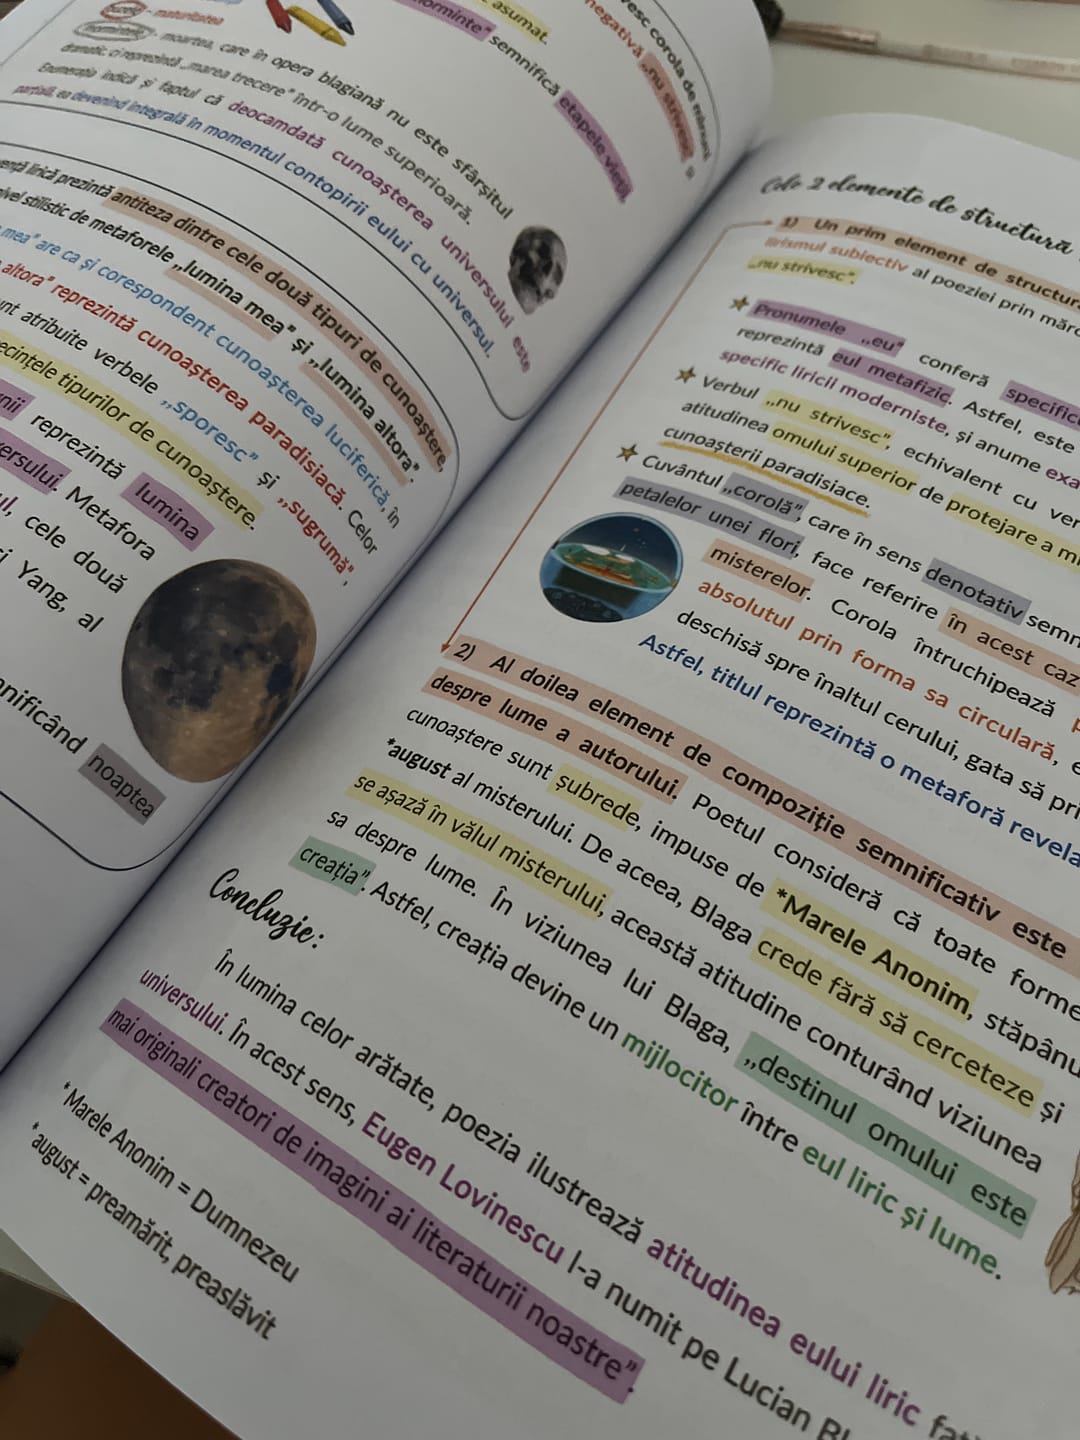 - maturitatea
- moartea, care în opera blagiană nu este sfârșitul
dramatic, ci reprezintă „marea trecere” într-o lume superioară.
Enumerația indică și faptul că deocamdată cunoașterea universului este
parțială, ea devenind integrală în momentul contopirii eului cu universul.
asumat.
semnifică etapele vieții,
vesc corola de minuni
negativă „nu strivesc”
lirică prezintă antiteza dintre cele două tipuri de cunoaștere,
nivel stilistic de metaforele „lumina mea” și „lumina altora”.
mea” are ca și corespondent cunoașterea luciferică, în
altora” reprezintă cunoașterea paradisiacă. Celor
atribuite verbele „sporesc” și „sugrumă”,
tipurilor de cunoaștere.
reprezintă lumina
Metafora
cele două
Yang, al
noaptea
Cele 2 elemente de structură
1) Un prim element de
lirismul subiectiv al poeziei prin
„nu strivesc”.
Pronumele „eu” conferă
reprezintă eul metafizic. Astfel, este
specific liricii moderniste, și anume
Verbul „nu strivesc”, echivalent cu
atitudinea omului superior de protejare a
cunoașterii paradisiace.
Cuvântul „corolă”, care în sens denotativ
petalelor unei flori, face referire în acest caz
misterelor. Corola întruchipează
absolutul prin forma sa circulară,
deschisă spre înaltul cerului, gata să
Astfel, titlul reprezintă o metaforă
2) Al doilea element de compoziție semnificativ este
despre lume a autorului. Poetul consideră că toate
cunoaștere sunt șubrede, impuse de *Marele Anonim,
*august al misterului. De aceea, Blaga crede fără să cerceteze și
se așază în vălul misterului, această atitudine conturând viziunea
sa despre lume. În viziunea lui Blaga, „destinul omului este
creația”. Astfel, creația devine un mijlocitor între eul liric și lume.
Concluzie:
În lumina celor arătate, poezia ilustrează atitudinea eului liric
universului. În acest sens, Eugen Lovinescu l-a numit pe Lucian
mai originali creatori de imagini ai literaturii noastre”.
*Marele Anonim = Dumnezeu
*august = preamărit, preaslăvit